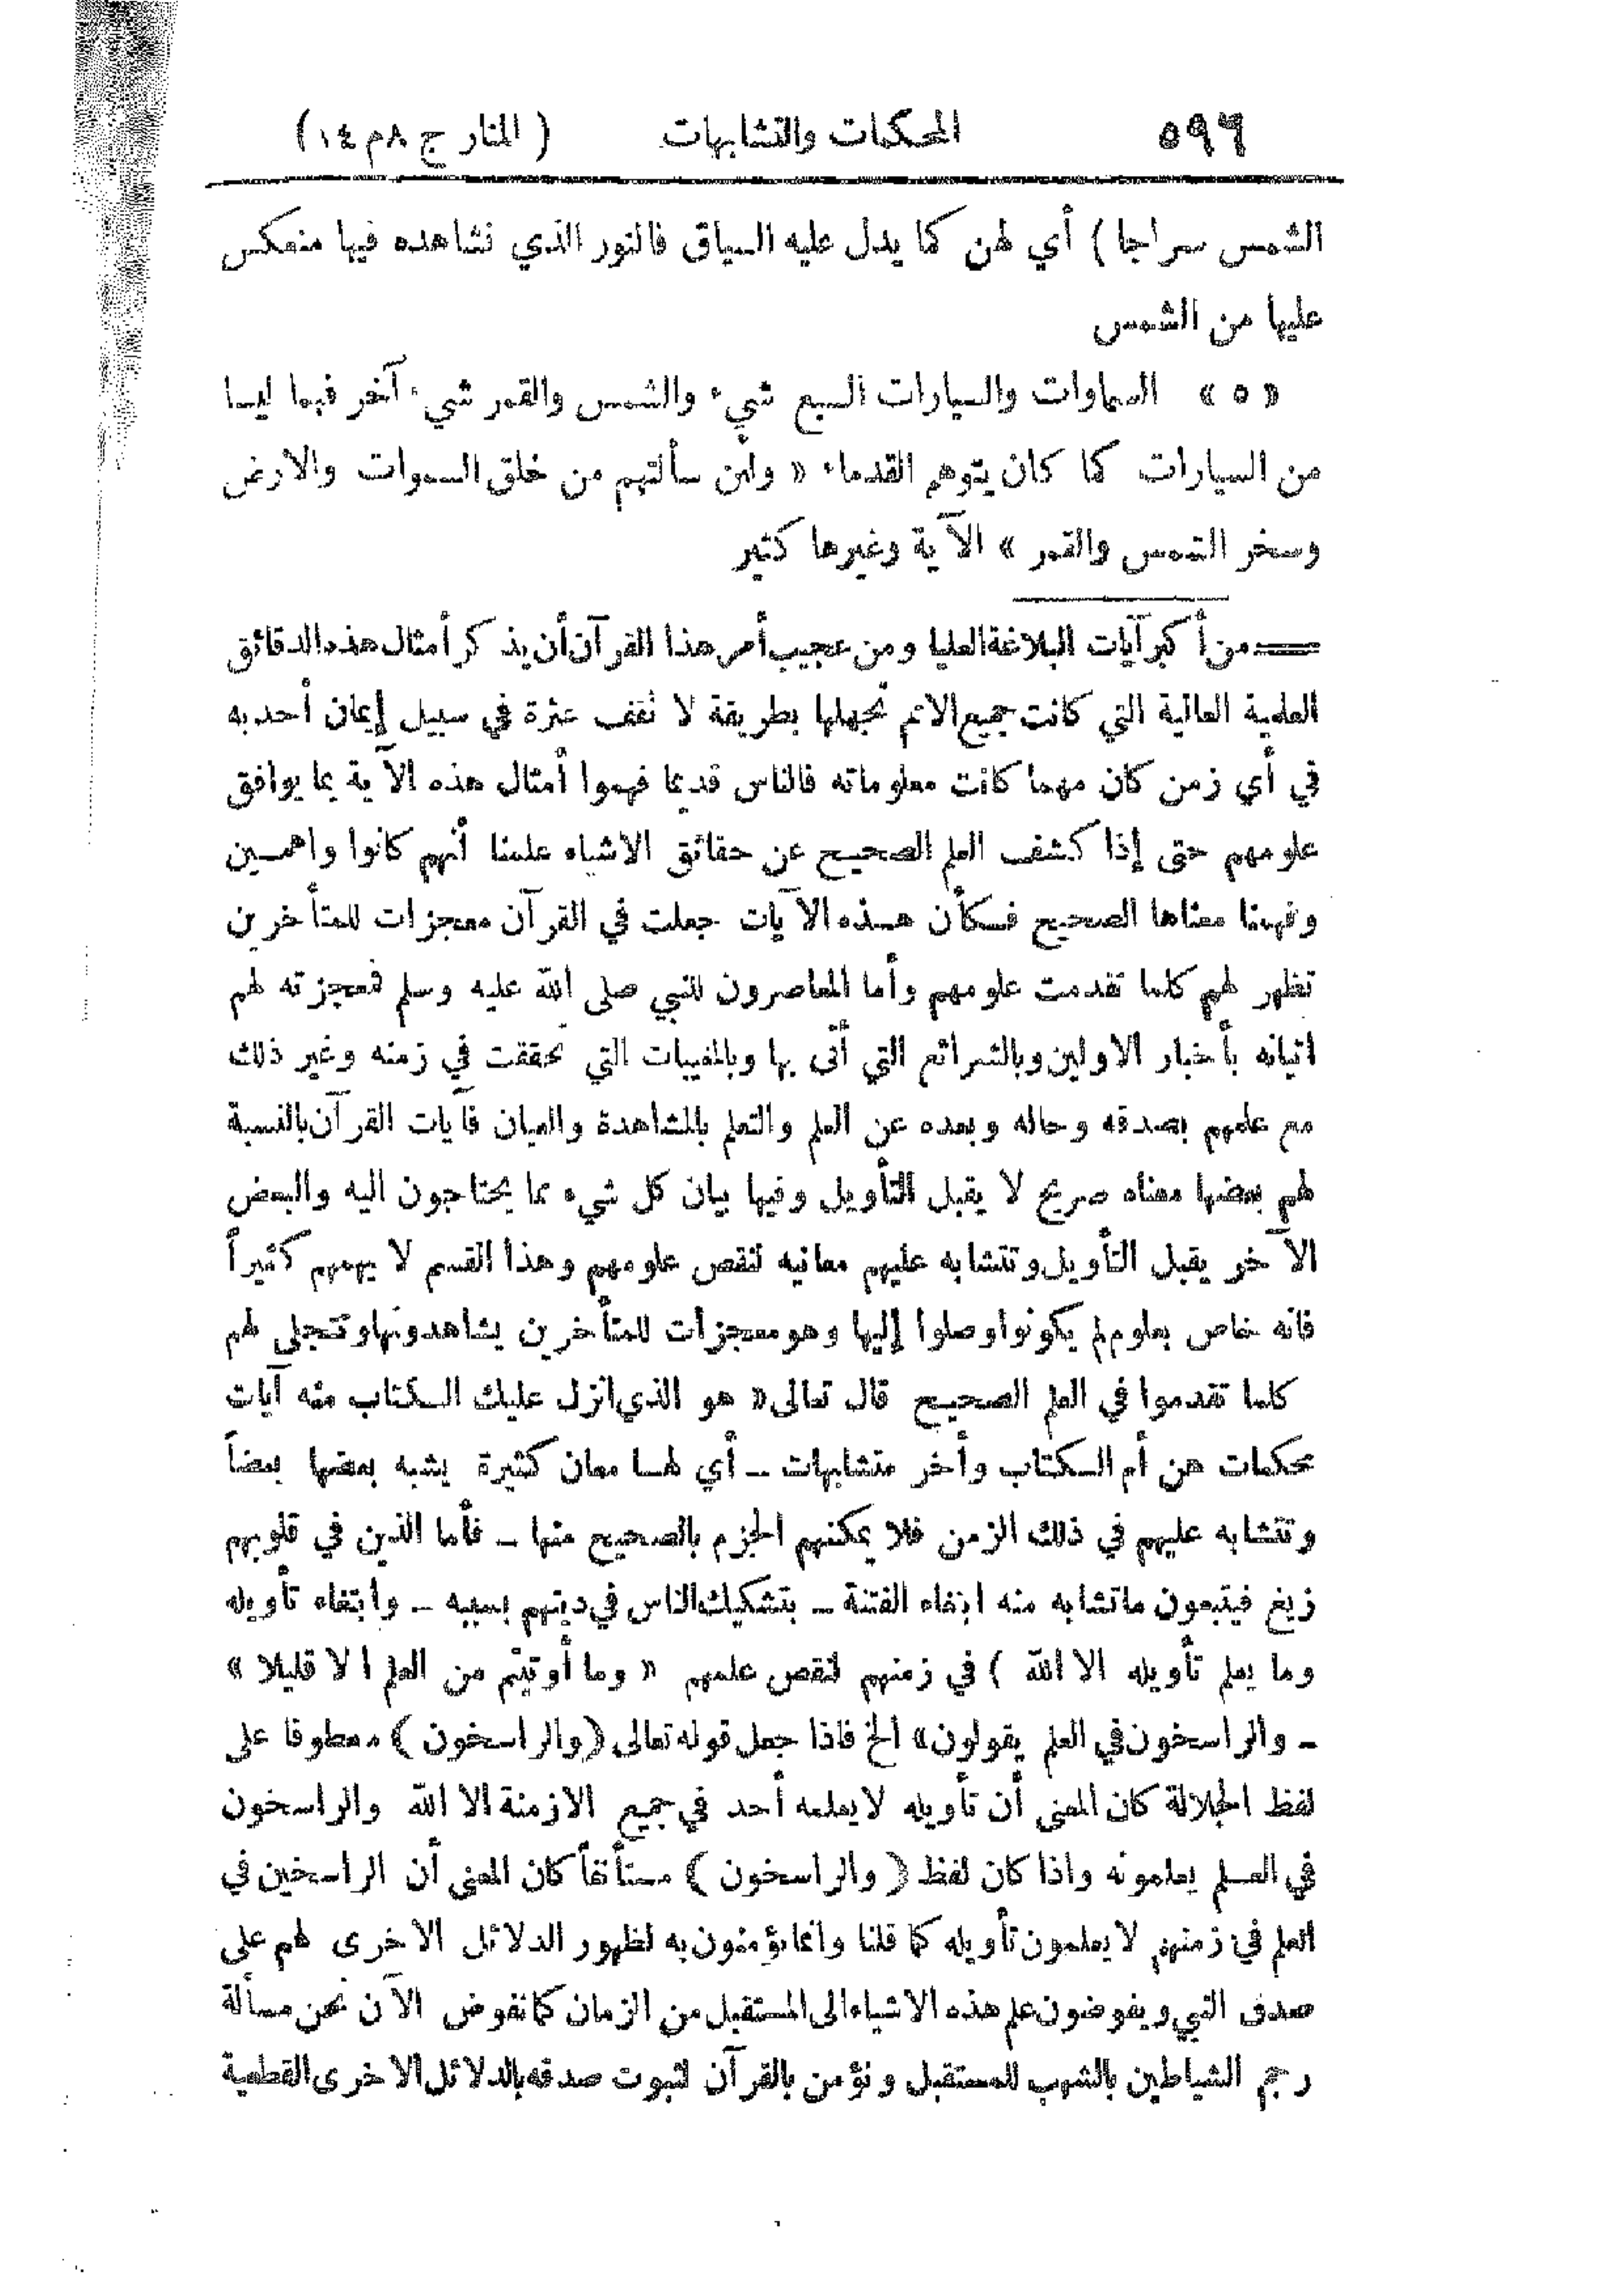 ٥٩٦ المحكمات والمتشابهات ( المنار ج ٨ م ١٤ )
الشمس سراجا ) أي لهن كما يدل عليه السياق فالنور الذي نشاهده فيها منعكس
عليها من الشمس
« ٥ » السماوات والسيارات السبع شيء والشمس والقمر شيء آخر فهما ليسا
من السيارات كما كان يتوهم القدماء « ولئن سألتهم من خلق السموات والارض
وسخر الشمس والقمر » الآية وغيرها كثير
= من أكبر آيات البلاغة العليا ومن عجيب أمر هذا القرآن أن يذكر أمثال هذه الدقائق
العلمية العالية التي كانت جميع الامم تجهلها بطريقة لا تقف عثرة في سبيل إيمان أحد به
في أي زمن كان مهما كانت معلوماته فالناس قديما فهموا أمثال هذه الآية بما يوافق
علومهم حتى إذا كشف العلم الصحيح عن حقائق الاشياء علمنا أنهم كانوا واهمين
وفهمنا معناها الصحيح فكأن هذه الآيات جعلت في القرآن معجزات للمتأخرين
تظهر لهم كلما تقدمت علومهم وأما المعاصرون للنبي صلى الله عليه وسلم فمعجزته لهم
اتيانه بأخبار الاولين وبالشرائع التي أتى بها وبالمغيبات التي تحققت في زمنه وغير ذلك
مع علمهم بصدقه وحاله وبعده عن العلم والتعلم بالمشاهدة والعيان فآيات القرآن بالنسبة
لهم بعضها معناه صريح لا يقبل التأويل وفيها بيان كل شيء مما يحتاجون اليه والبعض
الآخر يقبل التأويل وتتشابه عليهم معانيه لنقص علومهم وهذا القسم لا يهمهم كثيراً
فانه خاص بعلوم لم يكونوا وصلوا إليها وهو معجزات للمتأخرين يشاهدونها وتتجلى لهم
كلما تقدموا في العلم الصحيح قال تعالى « هو الذي انزل عليك الكتاب منه آيات
محكمات هن أم الكتاب وأخر متشابهات ــ أي لها معان كثيرة يشبه بعضها بعضاً
وتتشابه عليهم في ذلك الزمن فلا يمكنهم الجزم بالصحيح منها ــ فأما الذين في قلوبهم
زيغ فيتبعون ما تشابه منه ابتغاء الفتنة ــ بتشكيك الناس في دينهم بسببه ــ وابتغاء تأويله
وما يعلم تأويله الا الله ) في زمنهم لنقص علمهم « وما أوتيتم من العلم الا قليلا »
ــ والراسخون في العلم يقولون» الخ فاذا جعل قوله تعالى (والراسخون) معطوفا على
لفظ الجلالة كان المعنى أن تأويله لا يعلمه أحد في جميع الازمنة الا الله والراسخون
في العلم يعلمونه واذا كان لفظ ( والراسخون ) مستأنفاً كان المعنى أن الراسخين في
العلم في زمنهم لا يعلمون تأويله كما قلنا وانما يؤمنون به لظهور الدلائل الاخرى لهم على
صدق النبي ويفوضون علم هذه الاشياء الى المستقبل من الزمان كما نفوض الآن نحن مسألة
رجم الشياطين بالشهب للمستقبل ونؤمن بالقرآن لثبوت صدقه بالدلائل الاخرى القطعية